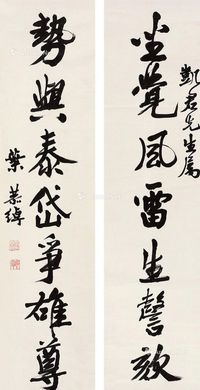 凱君先生屬
坐覺風雷生謦欬
勢與泰岱爭雄尊
葉恭綽